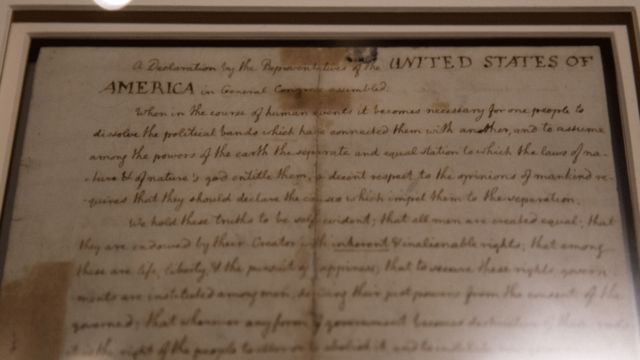 A Declaration by the Representatives of the UNITED STATES OF
AMERICA in General Congress assembled.
When in the course of human events it becomes necessary for one people to
dissolve the political bands which have connected them with another, and to assume
among the powers of the earth the separate and equal station to which the laws of na-
-ture & of nature's god entitle them, a decent respect to the opinions of mankind re-
-quires that they should declare the causes which impel them to the separation.
We hold these truths to be self evident; that all men are created equal; that
they are endowed by their Creator with inherent & inalienable rights; that among
these are life, liberty, & the pursuit of happiness; that to secure these rights, govern
ments are instituted among men, deriving their just powers from the consent of the
governed; that whenever any form of government becomes destructive of these ends
it is the right of the people to alter or to abolish it, and to institute